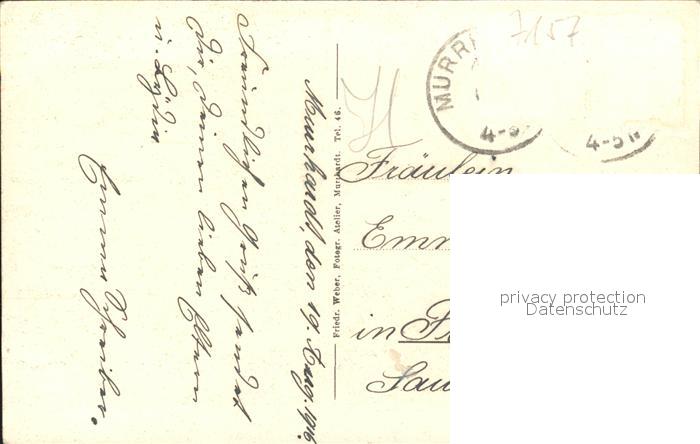 Murrhardt, den 19. Aug. 1916.
Freundlichen Gruß sendet
Dir, deinen lieben Eltern
u.
Emma Schreiber.
Friedr. Weber, Fotogr. Atelier, Murrhardt. Tel. 46.
7157
MURR
4-5
4-5N
Fräulein
Em
in
privacy protection
Datenschutz